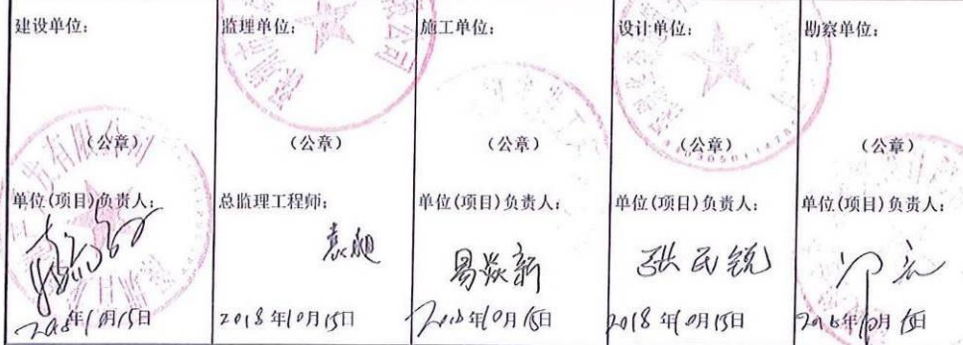 建设单位: 监理单位: 施工单位: 设计单位: 勘察单位:
(公章) (公章) (公章) (公章) (公章)
单位(项目)负责人: 总监理工程师: 单位(项目)负责人: 单位(项目)负责人: 单位(项目)负责人:
袁昶 易焱新 张民锐
2018年10月15日 2018年10月15日 2018年10月15日 2018年10月15日 2018年10月15日